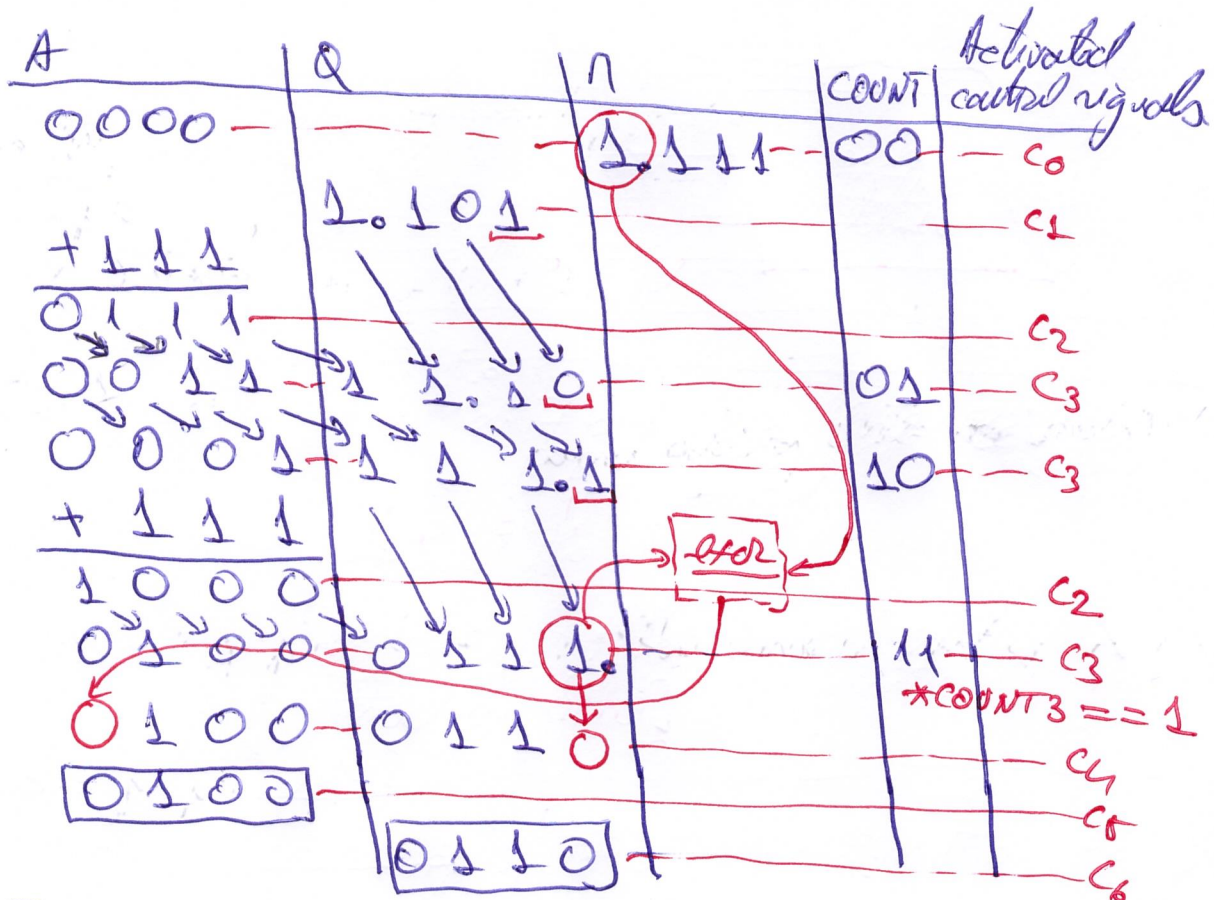 A Q M COUNT Activated
control signals
0000 1.111 00 c0
1.101 c1
+111
0111 c2
0011 11.10 01 c3
0001 111.1 10 c3
+ 111
exor
1000 c2
0100 0111. 11 c3
*COUNT3 == 1
0100 0110 c4
0100 c5
0110 c6